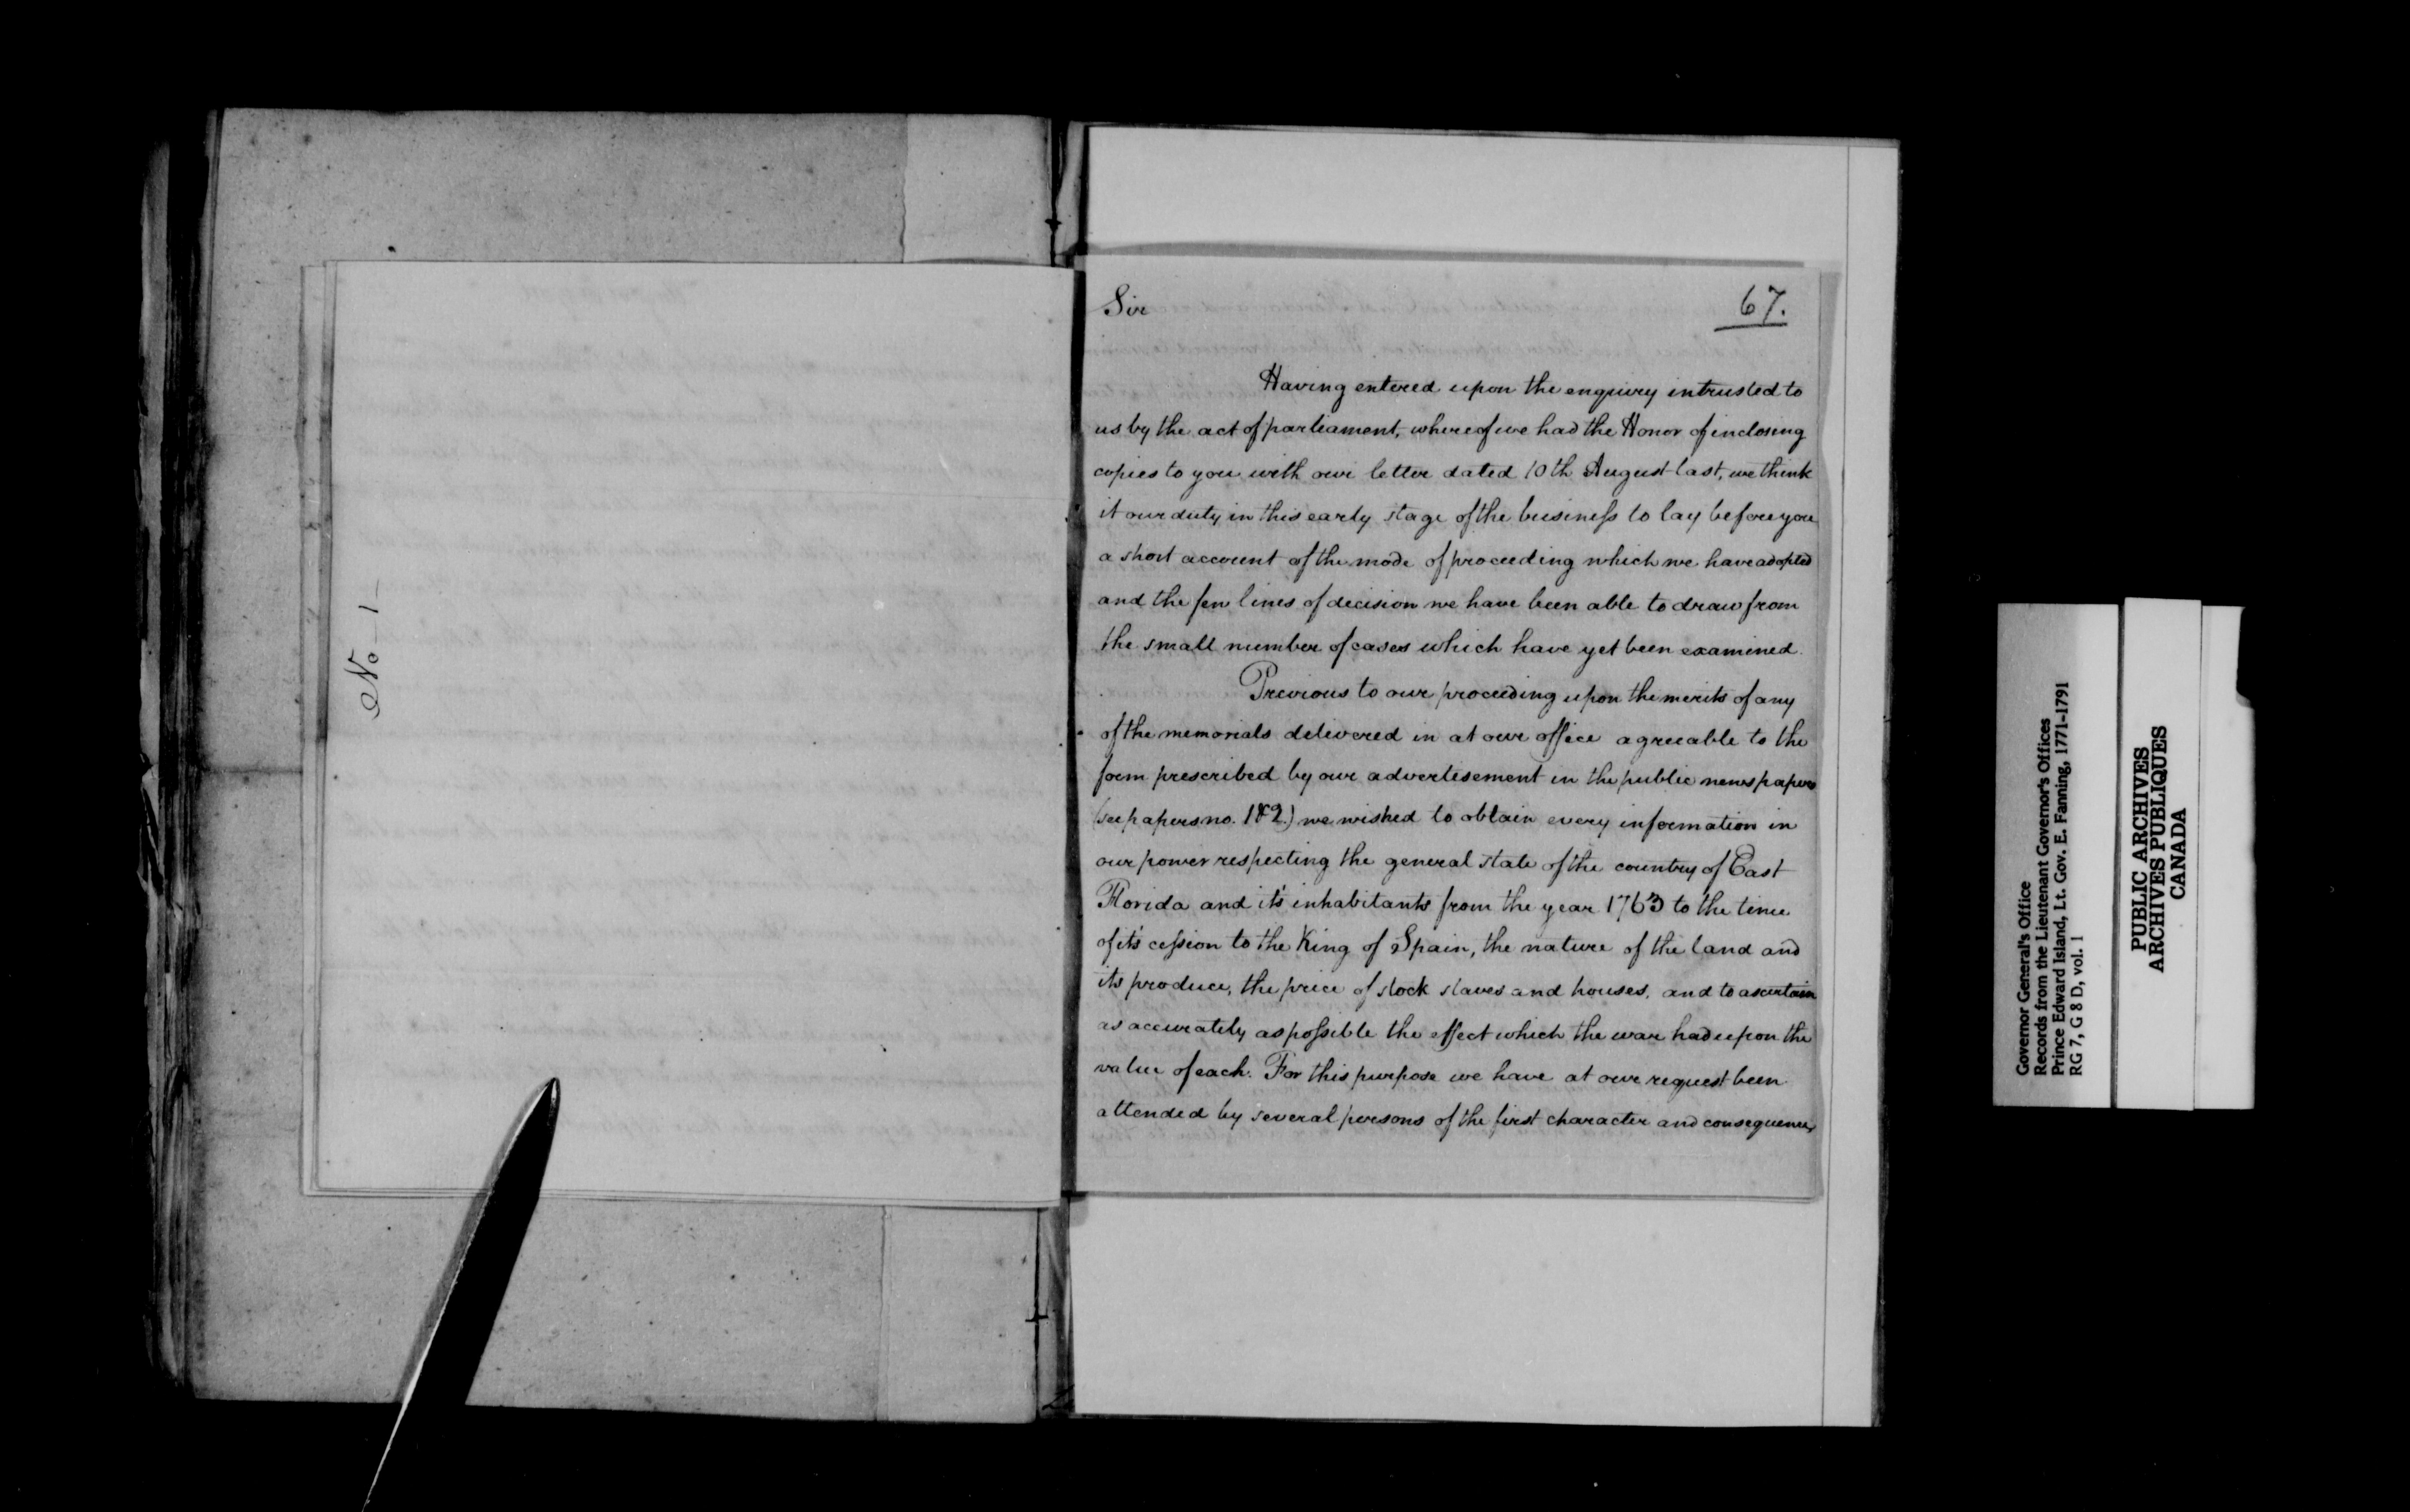 No-1-
67.
Sir
Having entered upon the enquiry intrusted to
us by the act of parliament, whereof we had the Honor of inclosing
copies to you with our letter dated 10th August last, we think
it our duty in this early stage of the busineſs to lay before you
a short account of the mode of proceeding which we have adopted
and the few lines of decision we have been able to draw from
the small number of cases which have yet been examined.
Previous to our proceeding upon the merits of any
of the memorials delivered in at our office agreeable to the
form prescribed by our advertisement in the public newspapers
(see papers no. 1 & 2.) we wished to obtain every information in
our power respecting the general state of the country of East
Florida and it's inhabitants from the year 1763 to the time
of it's ceſsion to the King of Spain, the nature of the land and
its produce, the price of stock slaves and houses, and to ascertain
as accurately as poſsible the effect which the war had upon the
value of each. For this purpose we have at our request been
attended by several persons of the first character and consequence,
Governor General's Office
Records from the Lieutenant Governor's Offices
Prince Edward Island, Lt. Gov. E. Fanning, 1771-1791
RG 7, G 8 D, vol. 1
PUBLIC ARCHIVES
ARCHIVES PUBLIQUES
CANADA